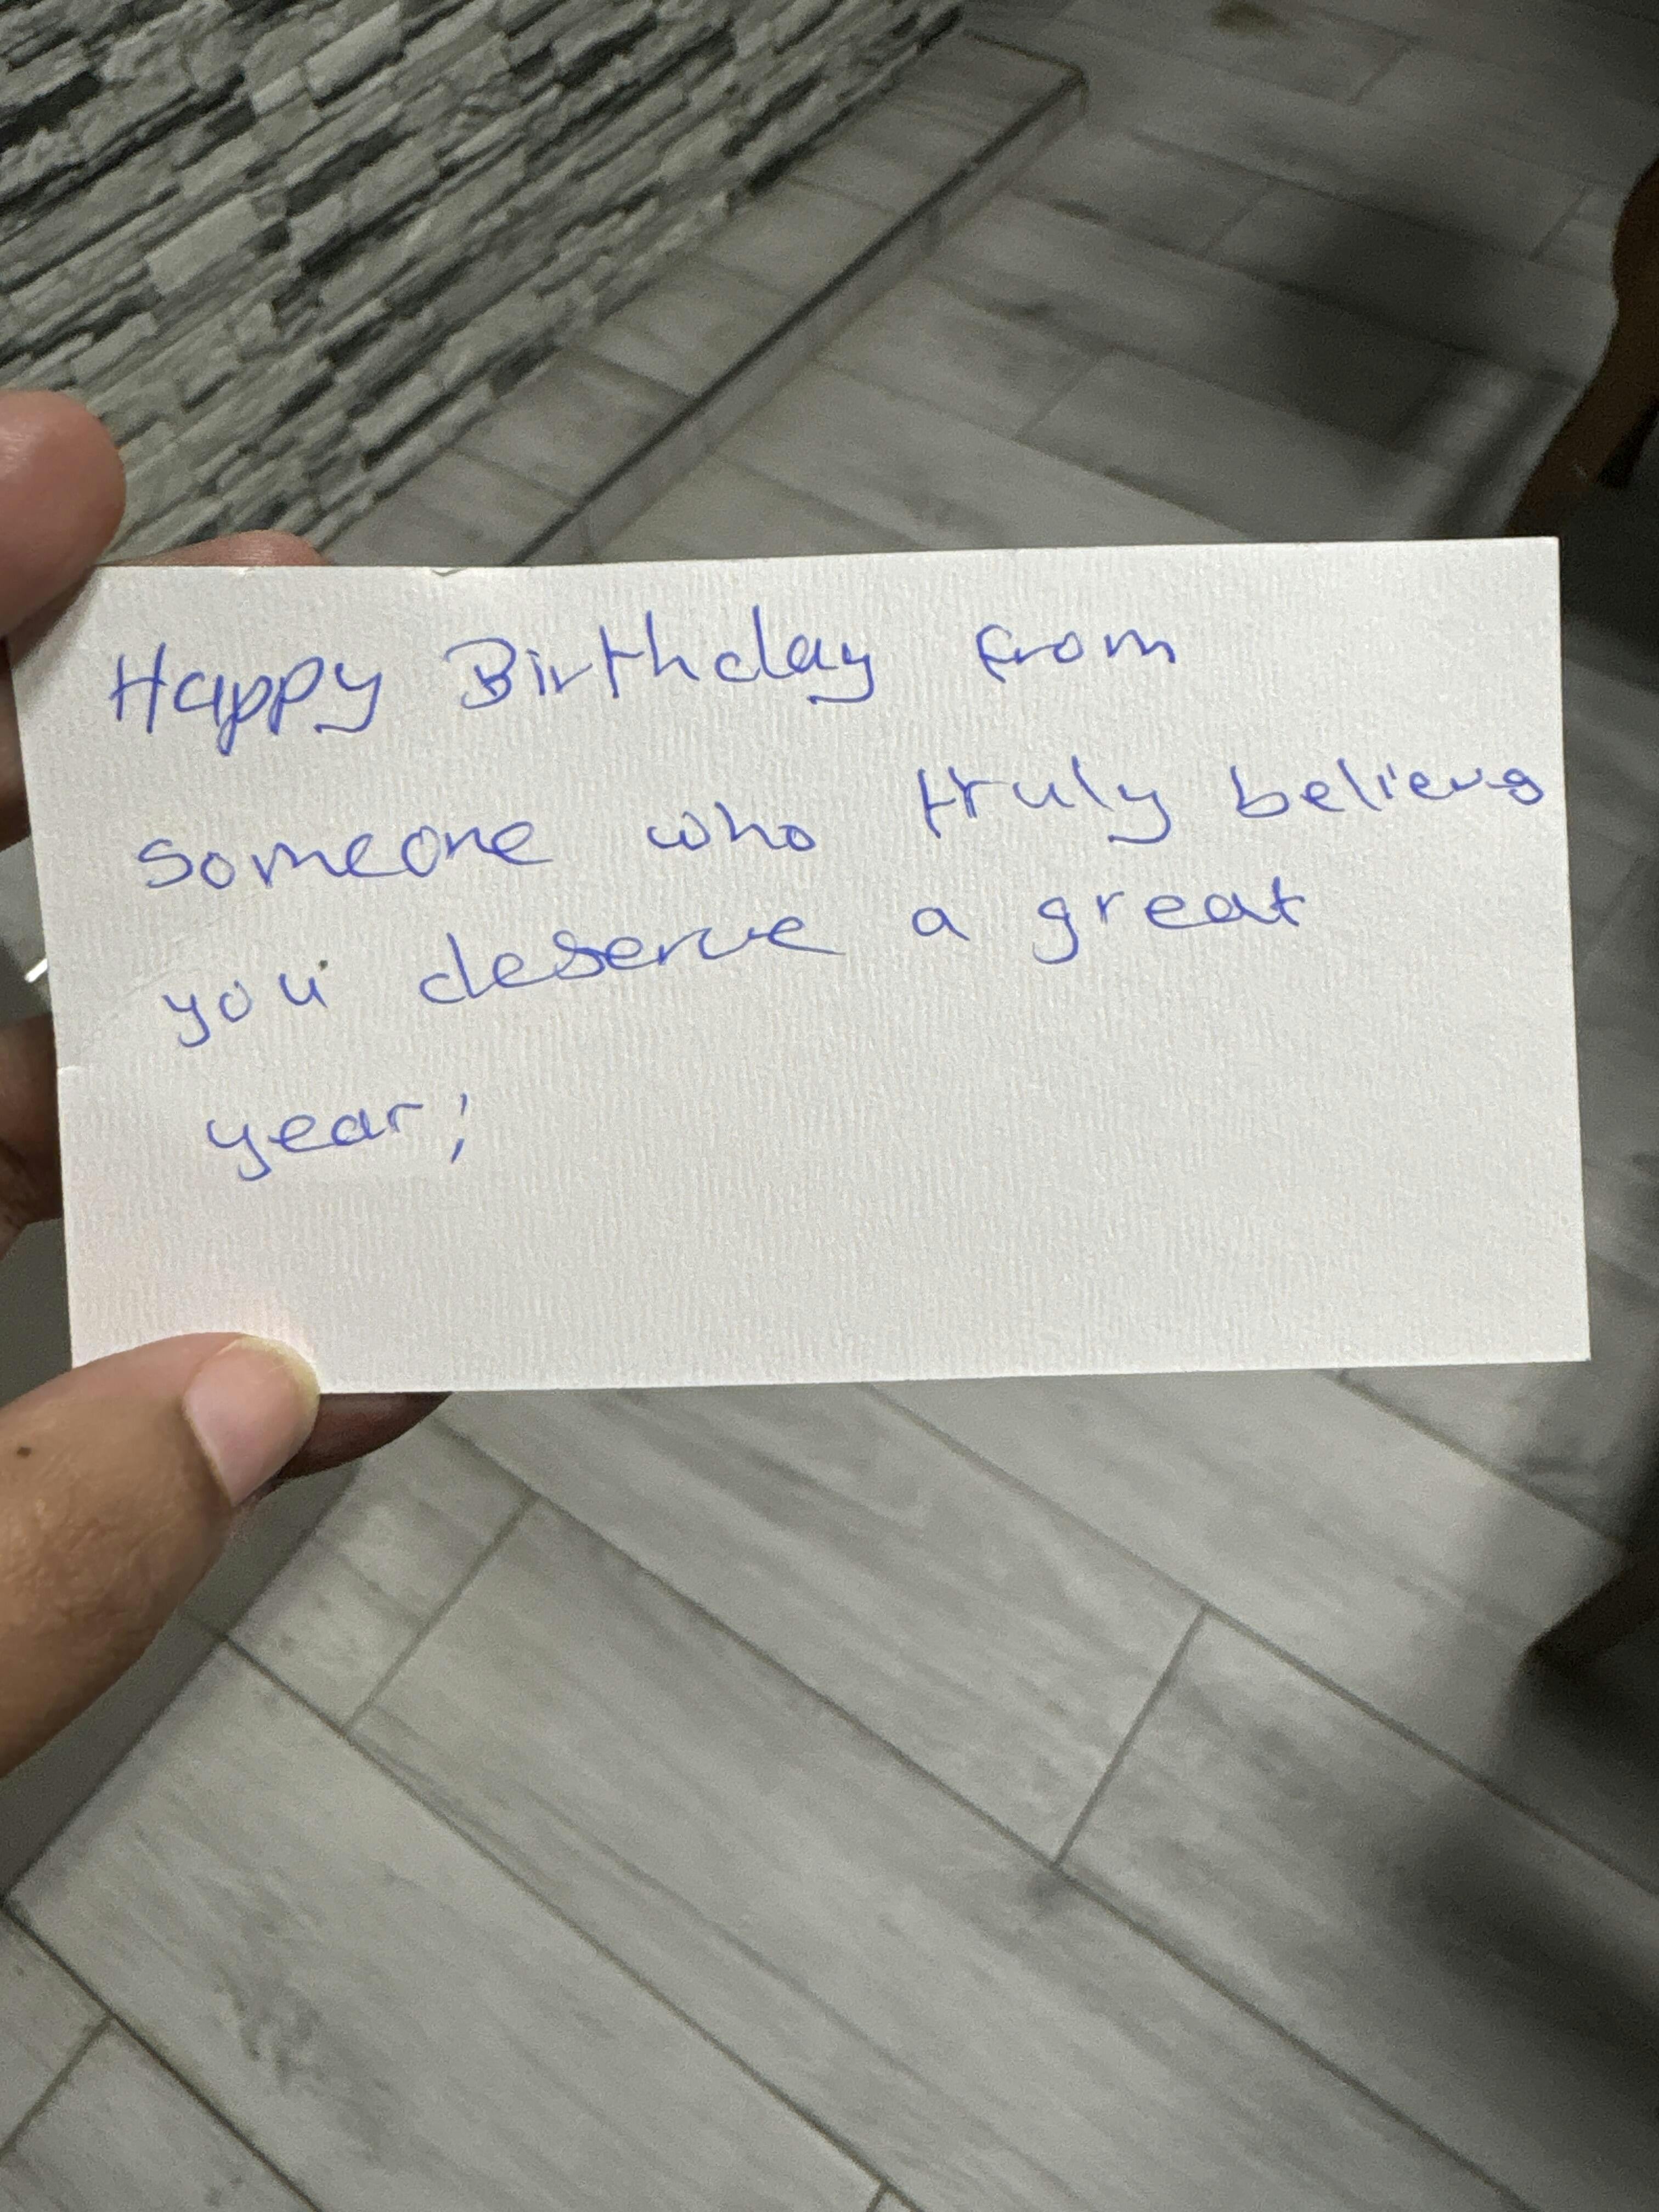 Happy Birthday from
someone who truly believs
you deserve a great
year;